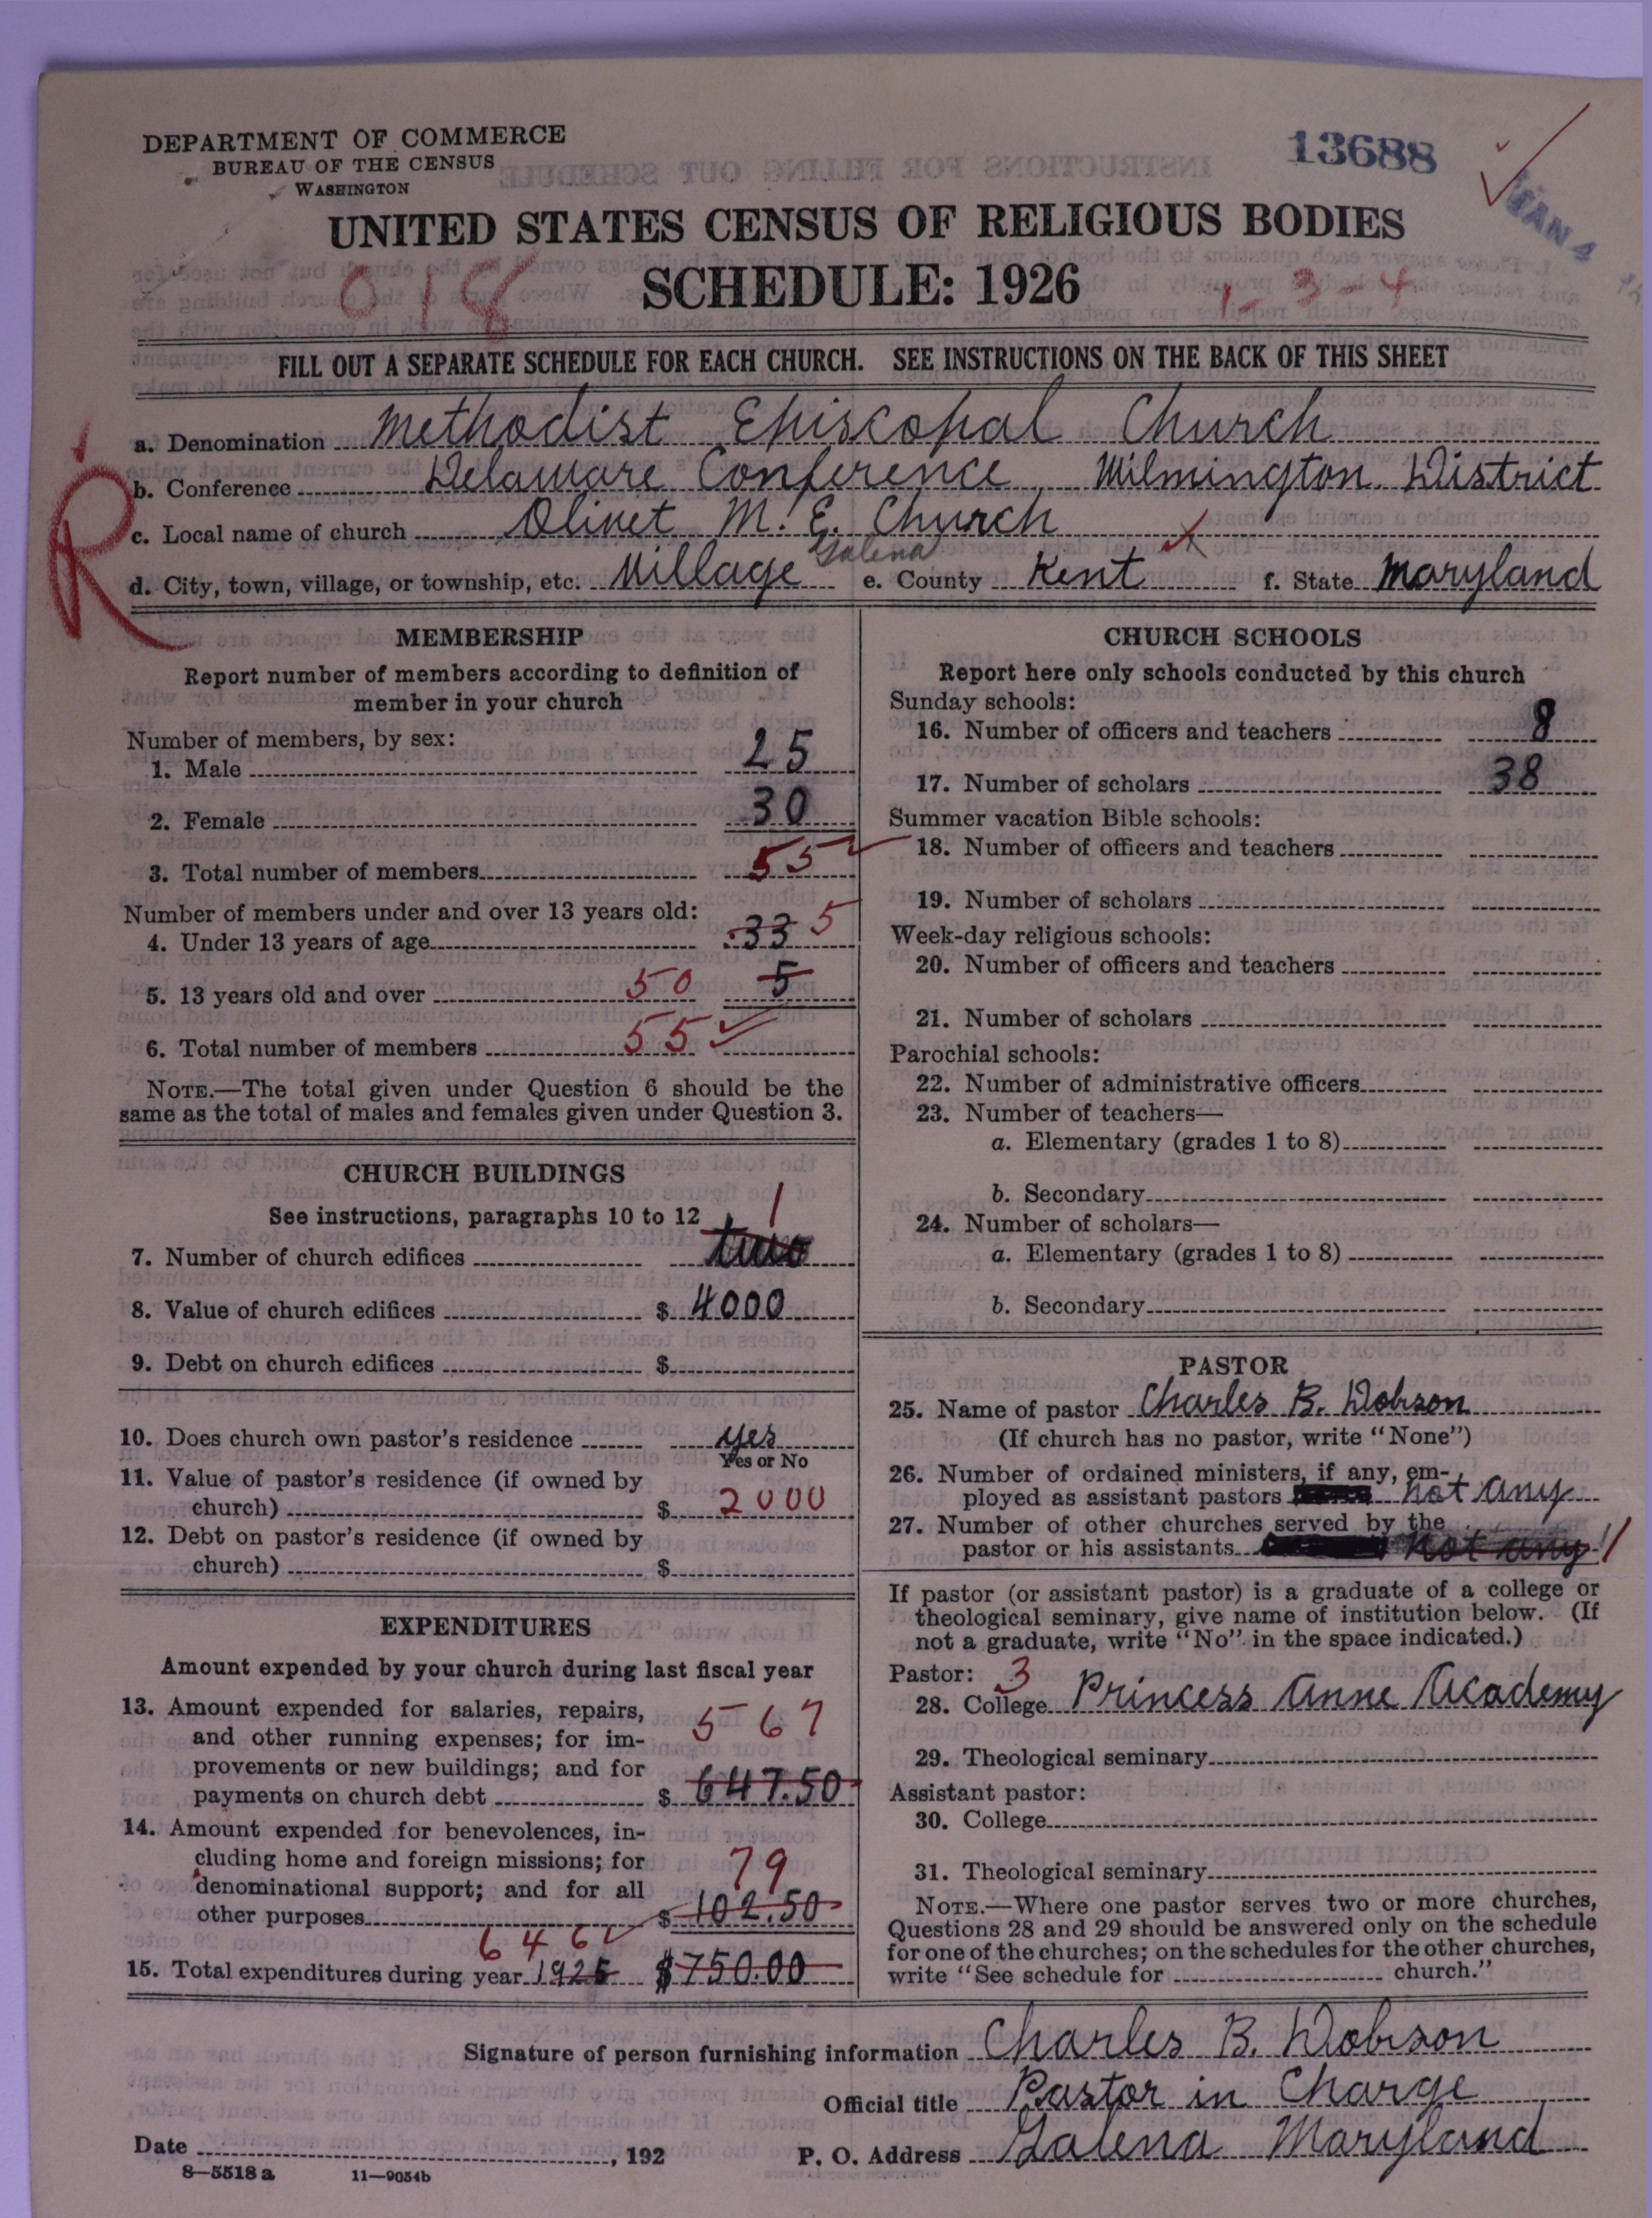 DEPARTMENT OF COMMERCE
BUREAU OF THE CENSUS
WASHINGTON
13688
JAN 4
UNITED STATES CENSUS OF RELIGIOUS BODIES
018 SCHEDULE: 1926 1-3-4
FILL OUT A SEPARATE SCHEDULE FOR EACH CHURCH. SEE INSTRUCTIONS ON THE BACK OF THIS SHEET
R
a. Denomination Methodist Episcopal Church
b. Conference Delaware Conference, Wilmington District
c. Local name of church Olivet M. E. Church
Galena
d. City, town, village, or township, etc. Village e. County Kent f. State Maryland
MEMBERSHIP
Report number of members according to definition of
member in your church
Number of members, by sex:
1. Male 25
2. Female 30
3. Total number of members 55
Number of members under and over 13 years old:
4. Under 13 years of age 33 5
5. 13 years old and over 50 5
6. Total number of members 55
NOTE.—The total given under Question 6 should be the
same as the total of males and females given under Question 3.
CHURCH BUILDINGS
See instructions, paragraphs 10 to 12
1
7. Number of church edifices two
8. Value of church edifices $ 4000
9. Debt on church edifices $
10. Does church own pastor's residence yes
Yes or No
11. Value of pastor's residence (if owned by
church) $ 2000
12. Debt on pastor's residence (if owned by
church) $
EXPENDITURES
Amount expended by your church during last fiscal year
13. Amount expended for salaries, repairs,
and other running expenses; for im- 567
provements or new buildings; and for
payments on church debt $ 647.50
14. Amount expended for benevolences, in-
cluding home and foreign missions; for 79
denominational support; and for all
other purposes $ 102.50
646
15. Total expenditures during year 1926 $750.00
CHURCH SCHOOLS
Report here only schools conducted by this church
Sunday schools:
16. Number of officers and teachers 8
17. Number of scholars 38
Summer vacation Bible schools:
18. Number of officers and teachers
19. Number of scholars
Week-day religious schools:
20. Number of officers and teachers
21. Number of scholars
Parochial schools:
22. Number of administrative officers
23. Number of teachers—
a. Elementary (grades 1 to 8)
b. Secondary
24. Number of scholars—
a. Elementary (grades 1 to 8)
b. Secondary
PASTOR
25. Name of pastor Charles B. Dobson
(If church has no pastor, write "None")
26. Number of ordained ministers, if any, em-
ployed as assistant pastors not any
27. Number of other churches served by the
pastor or his assistants not any 1
If pastor (or assistant pastor) is a graduate of a college or
theological seminary, give name of institution below. (If
not a graduate, write "No" in the space indicated.)
Pastor: 3
28. College Princess Anne Academy
29. Theological seminary
Assistant pastor:
30. College
31. Theological seminary
NOTE.—Where one pastor serves two or more churches,
Questions 28 and 29 should be answered only on the schedule
for one of the churches; on the schedules for the other churches,
write "See schedule for church."
Signature of person furnishing information Charles B. Dobson
Official title Pastor in Charge
Date , 192 P. O. Address Galena Maryland
8—5518a 11—9054b